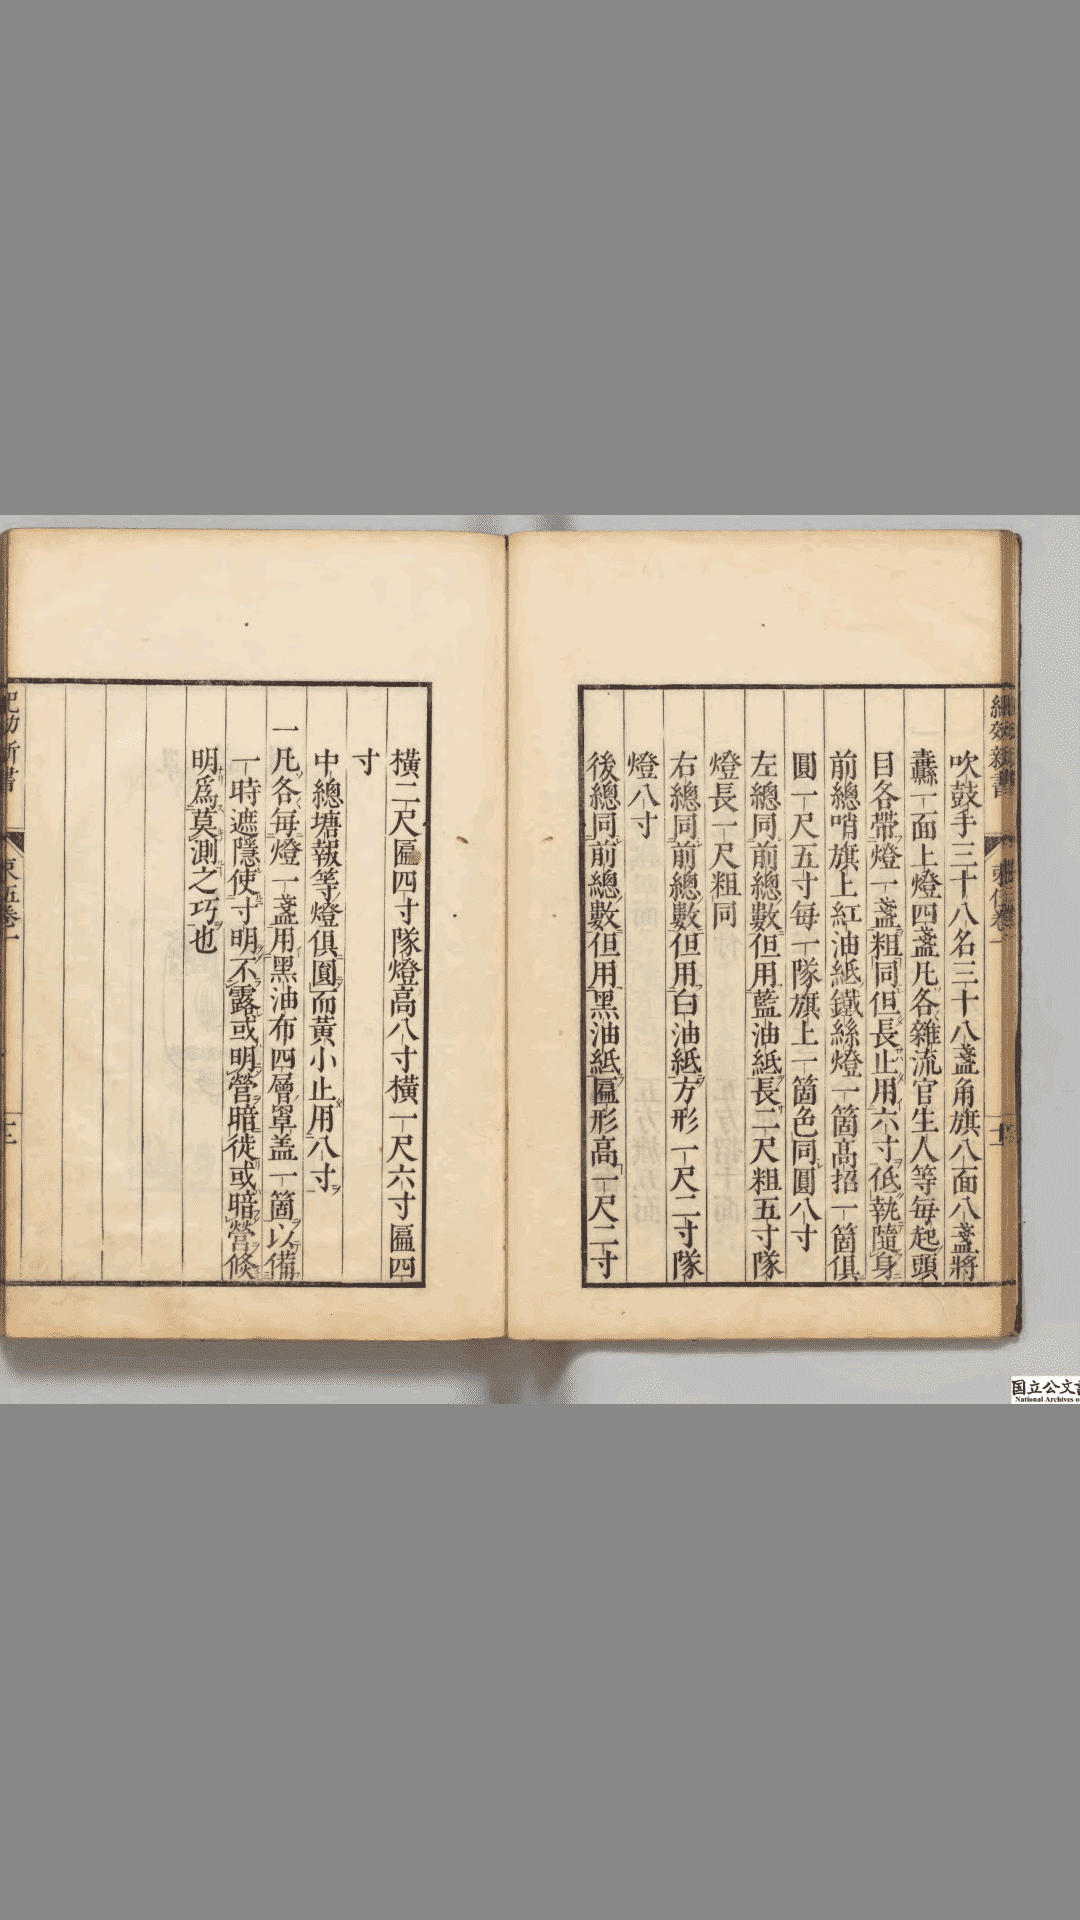 吹鼓手三十八名三十八盞角旗八面八盞將
纛一面上燈四盞凡各雜流官生人等每起頭
目各帶燈一盞粗同但長止用六寸低執隨身
前總哨旗上紅油紙鐵絲燈一箇高招一箇俱
圓一尺五寸每一隊旗上一箇色同圓八寸
左總同前總數但用藍油紙長二尺粗五寸隊
燈長一尺粗同
右總同前總數但用白油紙方形一尺二寸隊
燈八寸
後總同前總數但用黑油紙匾形高一尺二寸
橫二尺匾四寸隊燈高八寸橫一尺六寸匾四
寸
中總塘報等燈俱圓而黃小止用八寸
一凡各每燈一盞用黑油布四層罩盖一箇以備
一時遮隱使寸明不露或明營暗徙或暗營倐
明爲莫測之巧也
国立公文
National Archives o